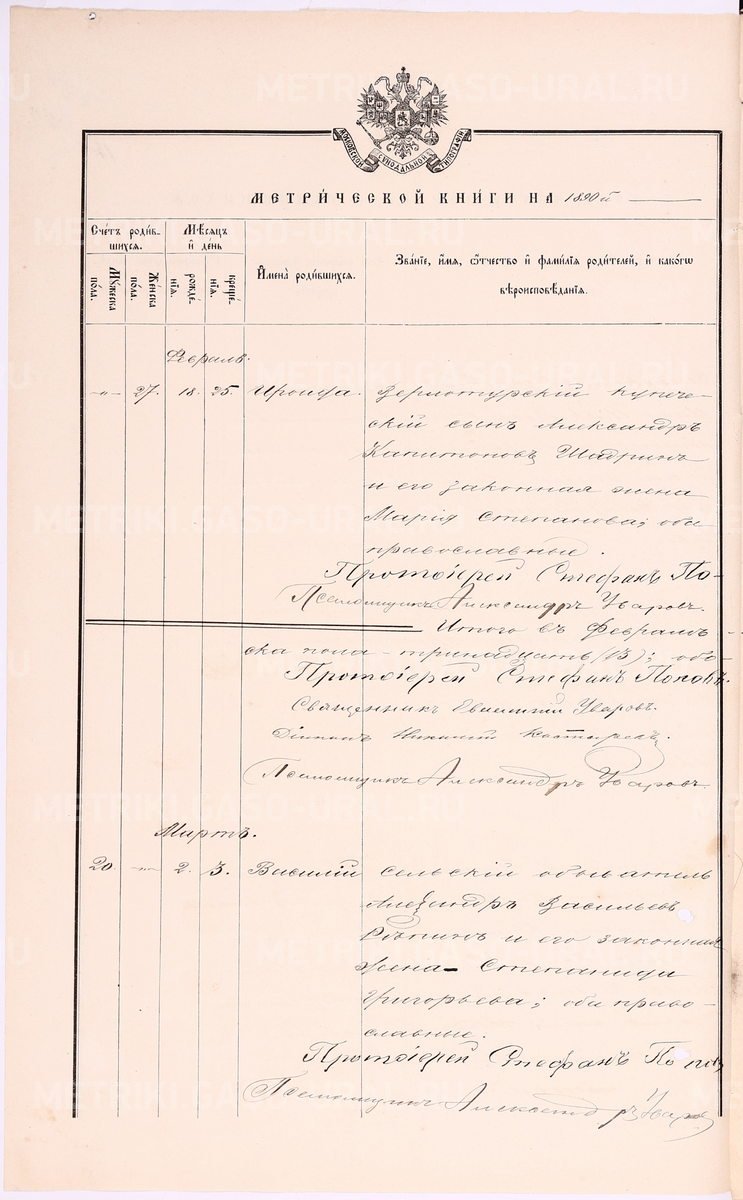 МОСКОВСКОЙ СѴНОДАЛЬНОЙ ТИПОГРАФІИ
МЕТРИЧЕСКОЙ КНИГИ НА 1890й
Счетъ родив-
шихся.
Мѣсяцъ
и день
Имена родившихся.
Званіе, имя, отчество и фамилія родителей, и какогѡ
вѣроисповѣданія.
Мужеска
пола.
Женска
пола.
рожде-
нія.
креще-
нія.
Февраль.
-"- 27. 18. 25. Ироида. Верхотурскій купече-
скій сынъ Александръ
Капитоновъ Шадринъ
и его законная жена
Марія Степанова; оба
православные.
Протоіерей Стефанъ По-
Псаломщикъ Александръ Уваровъ.
Итого въ Февралѣ
ска пола - тринадцать (13); обо-
Протоіерей Стефанъ Поповъ.
Священникъ Евгеній Уваровъ.
Діаконъ
Псаломщикъ Александръ Уваровъ.
Мартъ.
20. -"- 2. 3. Василій Сельскій обыватель
Александръ Васильевъ
Рѣпинъ и его законная
жена - Степанида
Григорьева; оба право-
славные.
Протоіерей Стефанъ Попов
Псаломщикъ Александръ Уваров